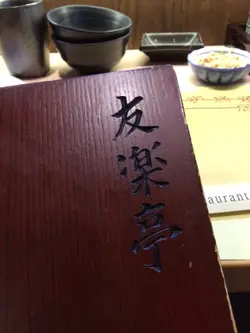 友楽亭
aurant